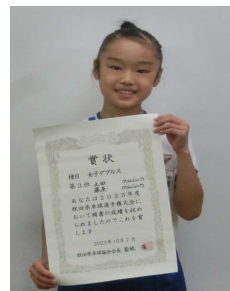 賞状
種目 女子ダブルス
第3位 上田
藤原
あなたは2023年度
秋田県卓球選手権大会に
おいて頭書の成績を収め
られましたのでこれを賞
します
2023年10月7日
秋田県卓球協会会長 菊地